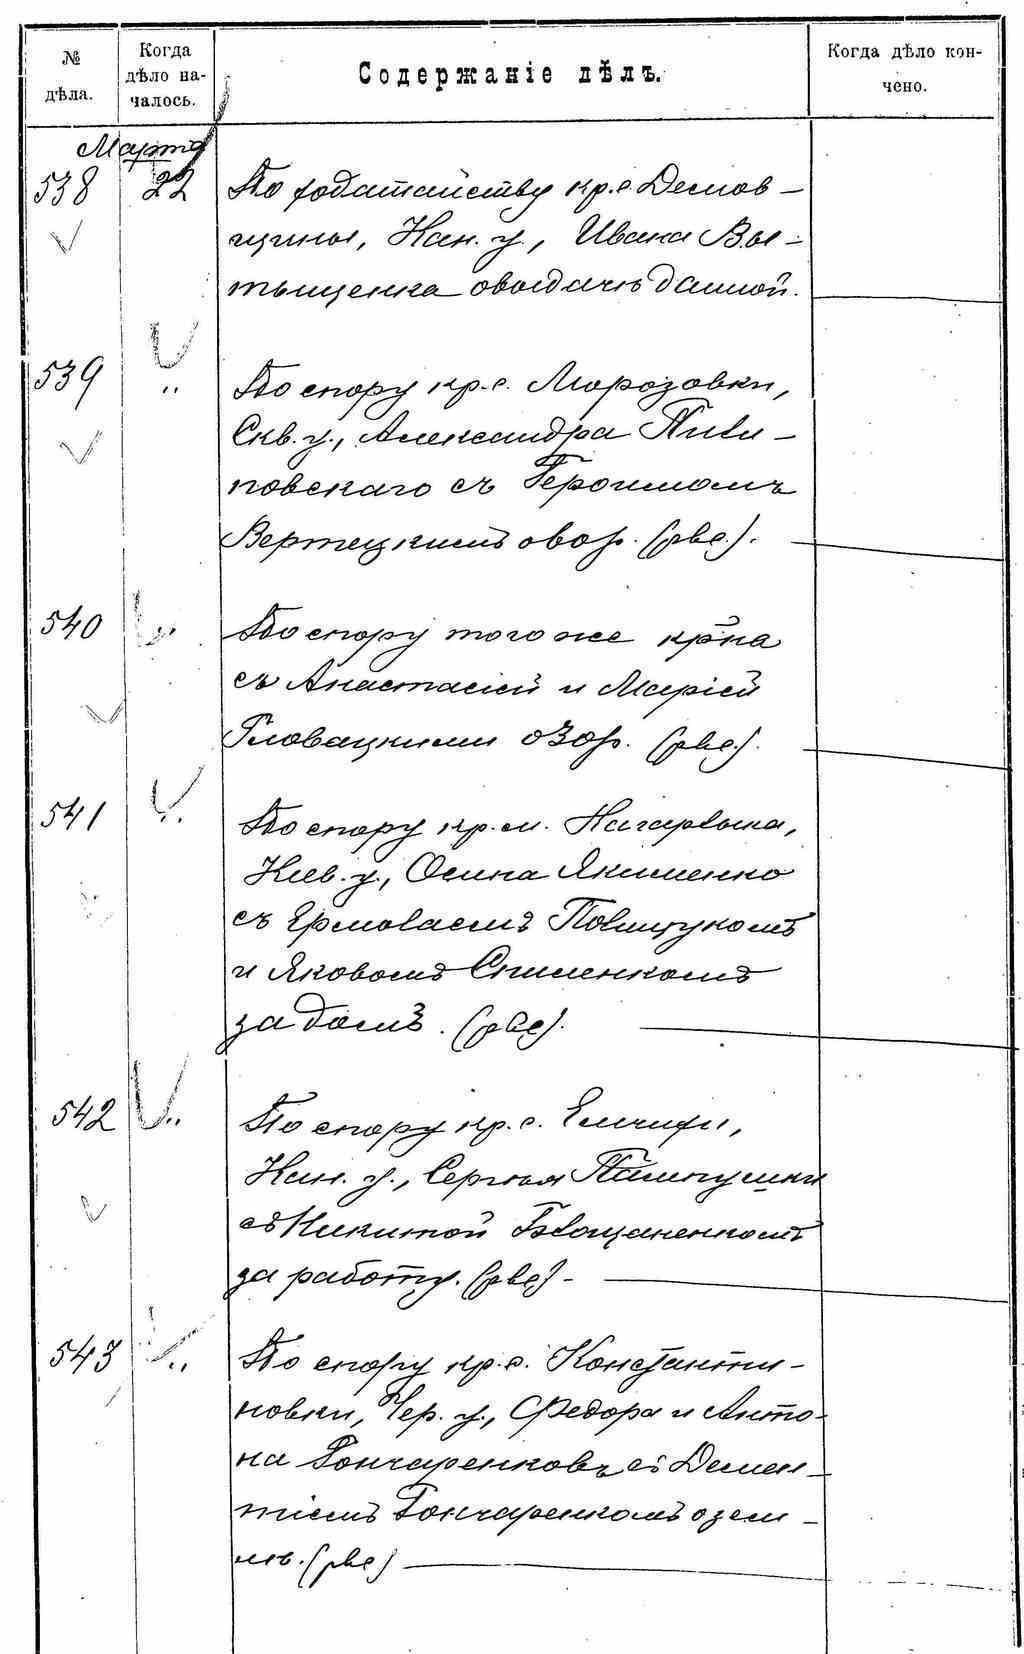 № дѣла. Когда дѣло началось. Содержаніе дѣлъ. Когда дѣло кончено.
Марта
538 22 По ходатайству кр. с. Демов-
щины, Кан. у., Ивана Вы-
тыщенка о выдачѣ данной.
539 „ По спору кр. с. Морозовки,
Скв. у., Александра Пили-
повскаго съ Героимомъ
Вертецкимъ о вор.
540 „ По спору того же кр-на
съ Анастасіей и Маріей
Гловацкими о 30 р.
541 „ По спору кр. м.
Кіев. у., Осипа Якименко
съ Ермолаемъ Полищукомъ
и Яковомъ Спиленкомъ
за домъ.
542 „ По спору кр. с. Емчихи,
Кан. у., Сергѣя
съ Никитой
за работу.
543 „ По спору кр. с. Константи-
новки, Чер. у., Федора и Анто-
на Гончаренковъ съ Демен-
тіемъ Гончаренкомъ о зем-
лѣ.